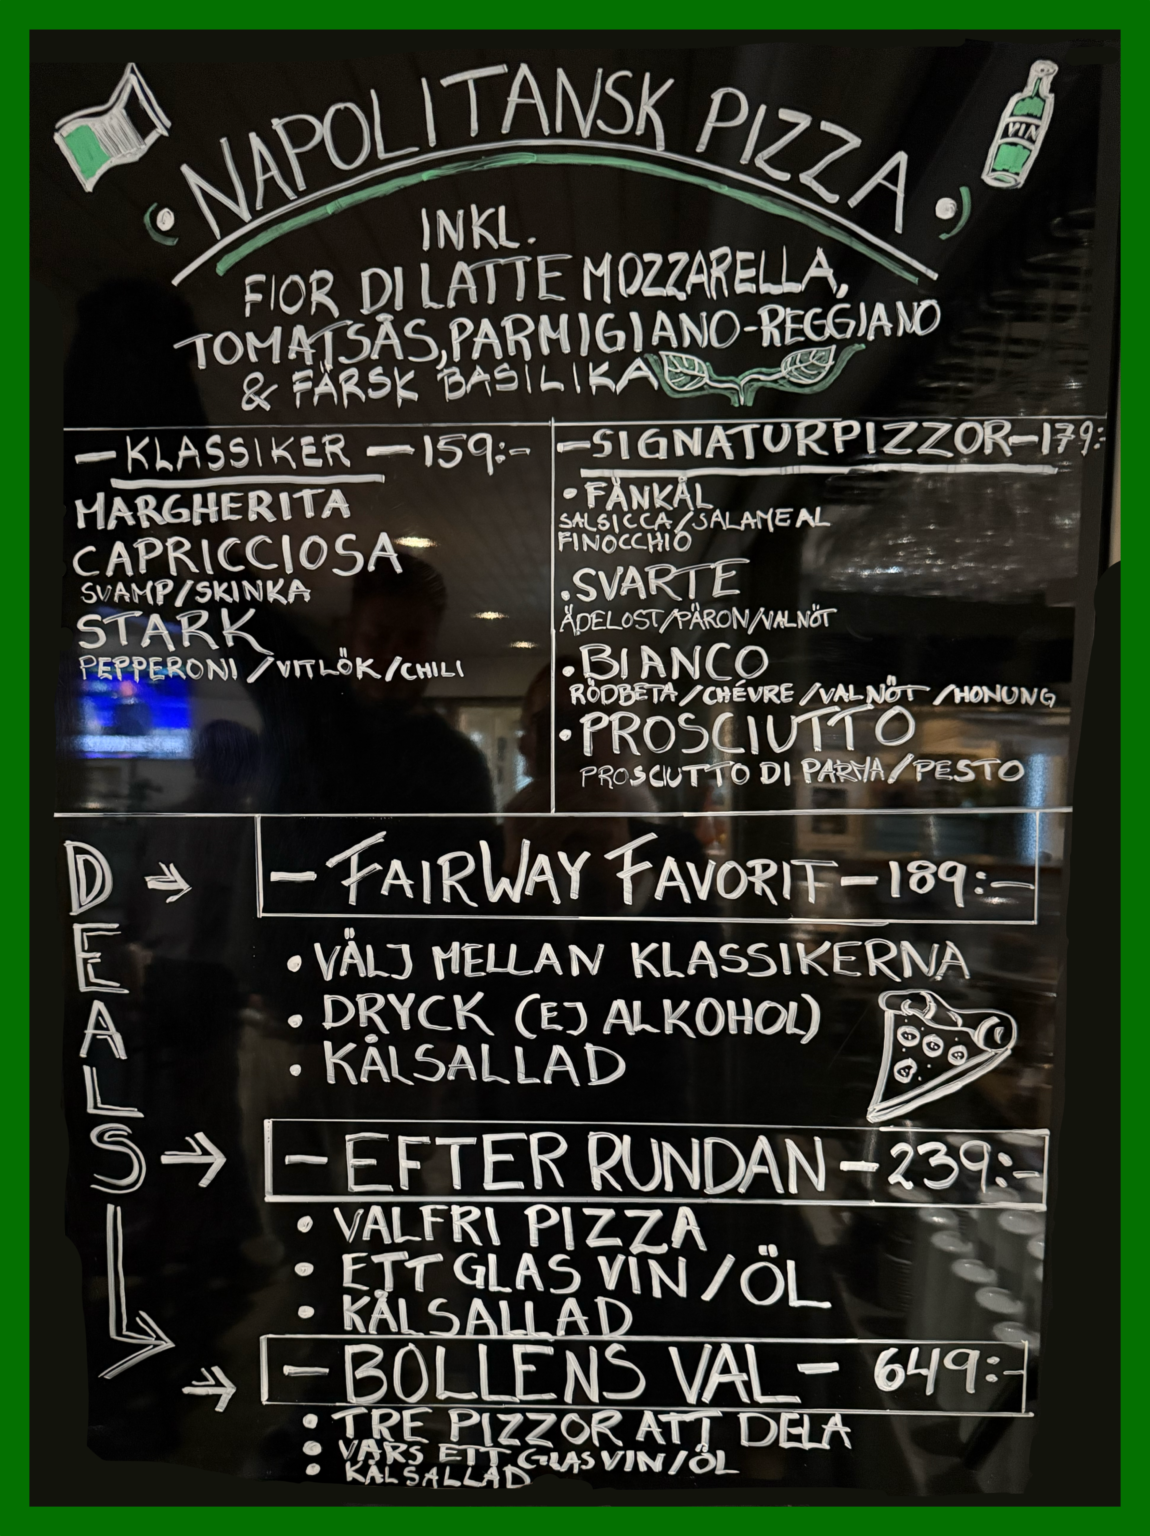 VIN
NAPOLITANSK PIZZA
INKL.
FIOR DI LATTE MOZZARELLA,
TOMATSÅS, PARMIGIANO-REGGIANO
& FÄRSK BASILIKA
– KLASSIKER – 159:-
MARGHERITA
CAPRICCIOSA
SVAMP/SKINKA
STARK
PEPPERONI / VITLÖK / CHILI
– SIGNATURPIZZOR – 179:-
• FÄNKÅL
SALSICCA/SALAME AL
FINOCCHIO
• SVARTE
ÄDELOST/PÄRON/VALNÖT
• BIANCO
RÖDBETA / CHÉVRE / VALNÖT / HONUNG
• PROSCIUTTO
PROSCIUTTO DI PARMA / PESTO
DEALS
– FAIRWAY FAVORIT – 189:-
• VÄLJ MELLAN KLASSIKERNA
• DRYCK (EJ ALKOHOL)
• KÅLSALLAD
– EFTER RUNDAN – 239:-
• VALFRI PIZZA
• ETT GLAS VIN / ÖL
• KÅLSALLAD
– BOLLENS VAL – 649:-
• TRE PIZZOR ATT DELA
• VARS ETT GLAS VIN / ÖL
• KÅLSALLAD